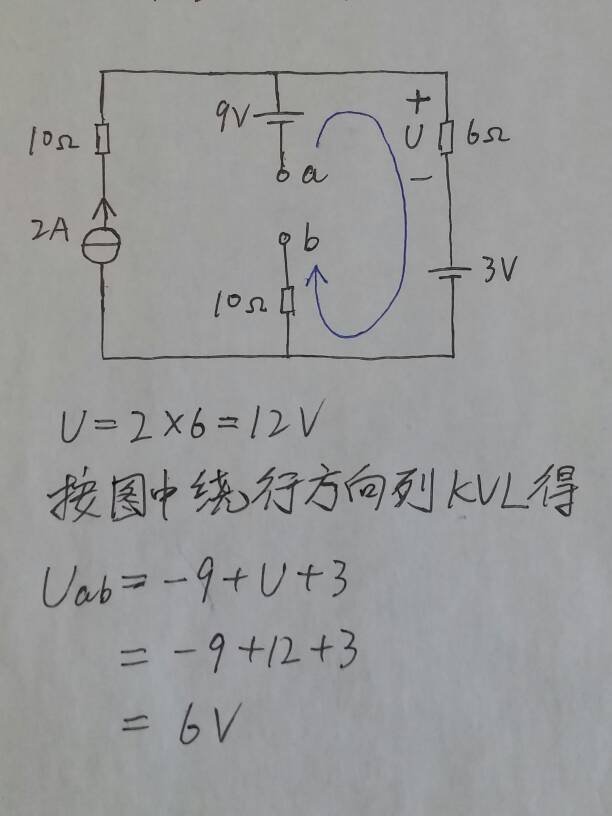 9V
+
10Ω
U
6Ω
a
−
2A
b
3V
10Ω
U=2×6=12V
按图中绕行方向列KVL得
Uab=-9+U+3
=-9+12+3
=6V